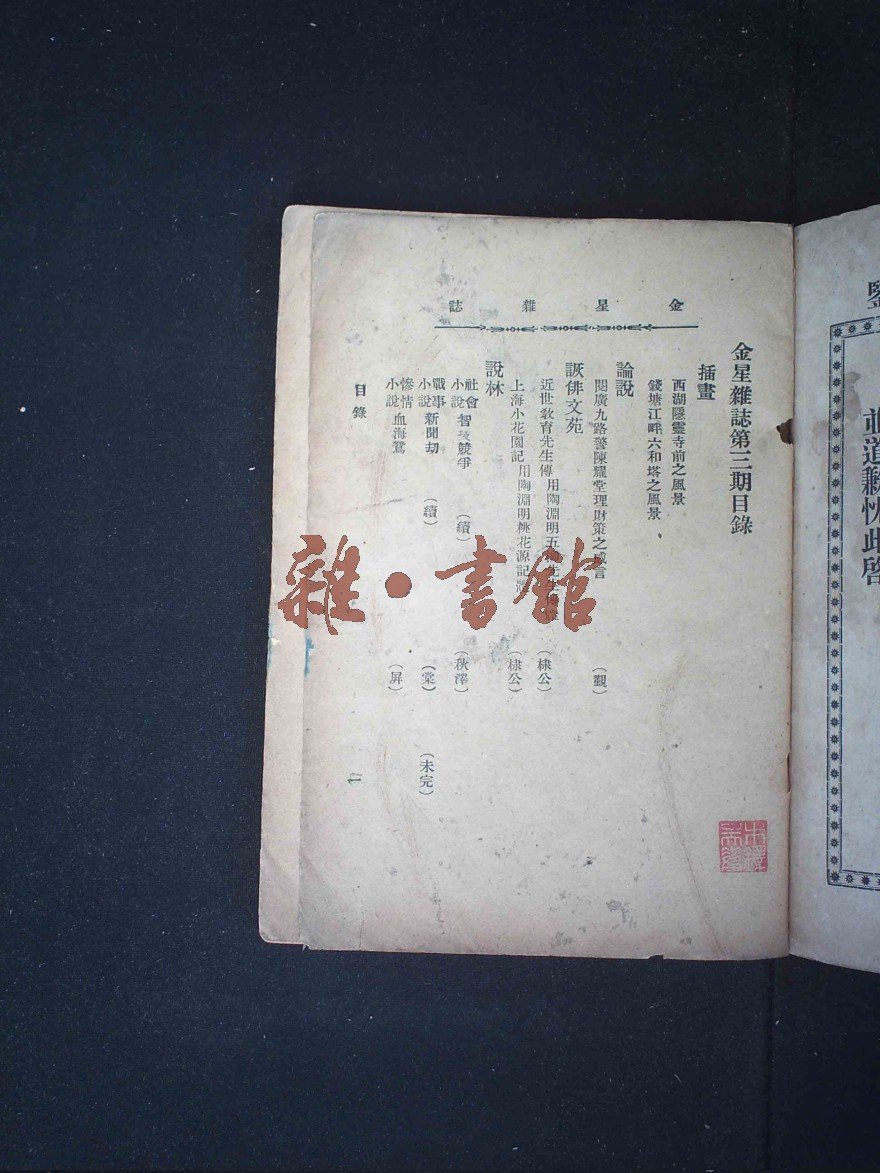 金星雜誌
金星雜誌第三期目錄
插畫
西湖隱靈寺前之風景
錢塘江畔六和塔之風景
論說
閱廣九路警陳耀堂理財策之感言 (觀)
詼俳文苑
近世敎育先生傳 用陶淵明五柳先生 (棣公)
上海小花園記 用陶淵明桃花源記 (棣公)
說林
社會小說 智 競爭 (續) (秋澤)
戰事小說 新聞刧 (續) (棠) (未完)
慘情小說 血海鴛 (屏)
目錄
一
雜·書館
並道歉忱此啓